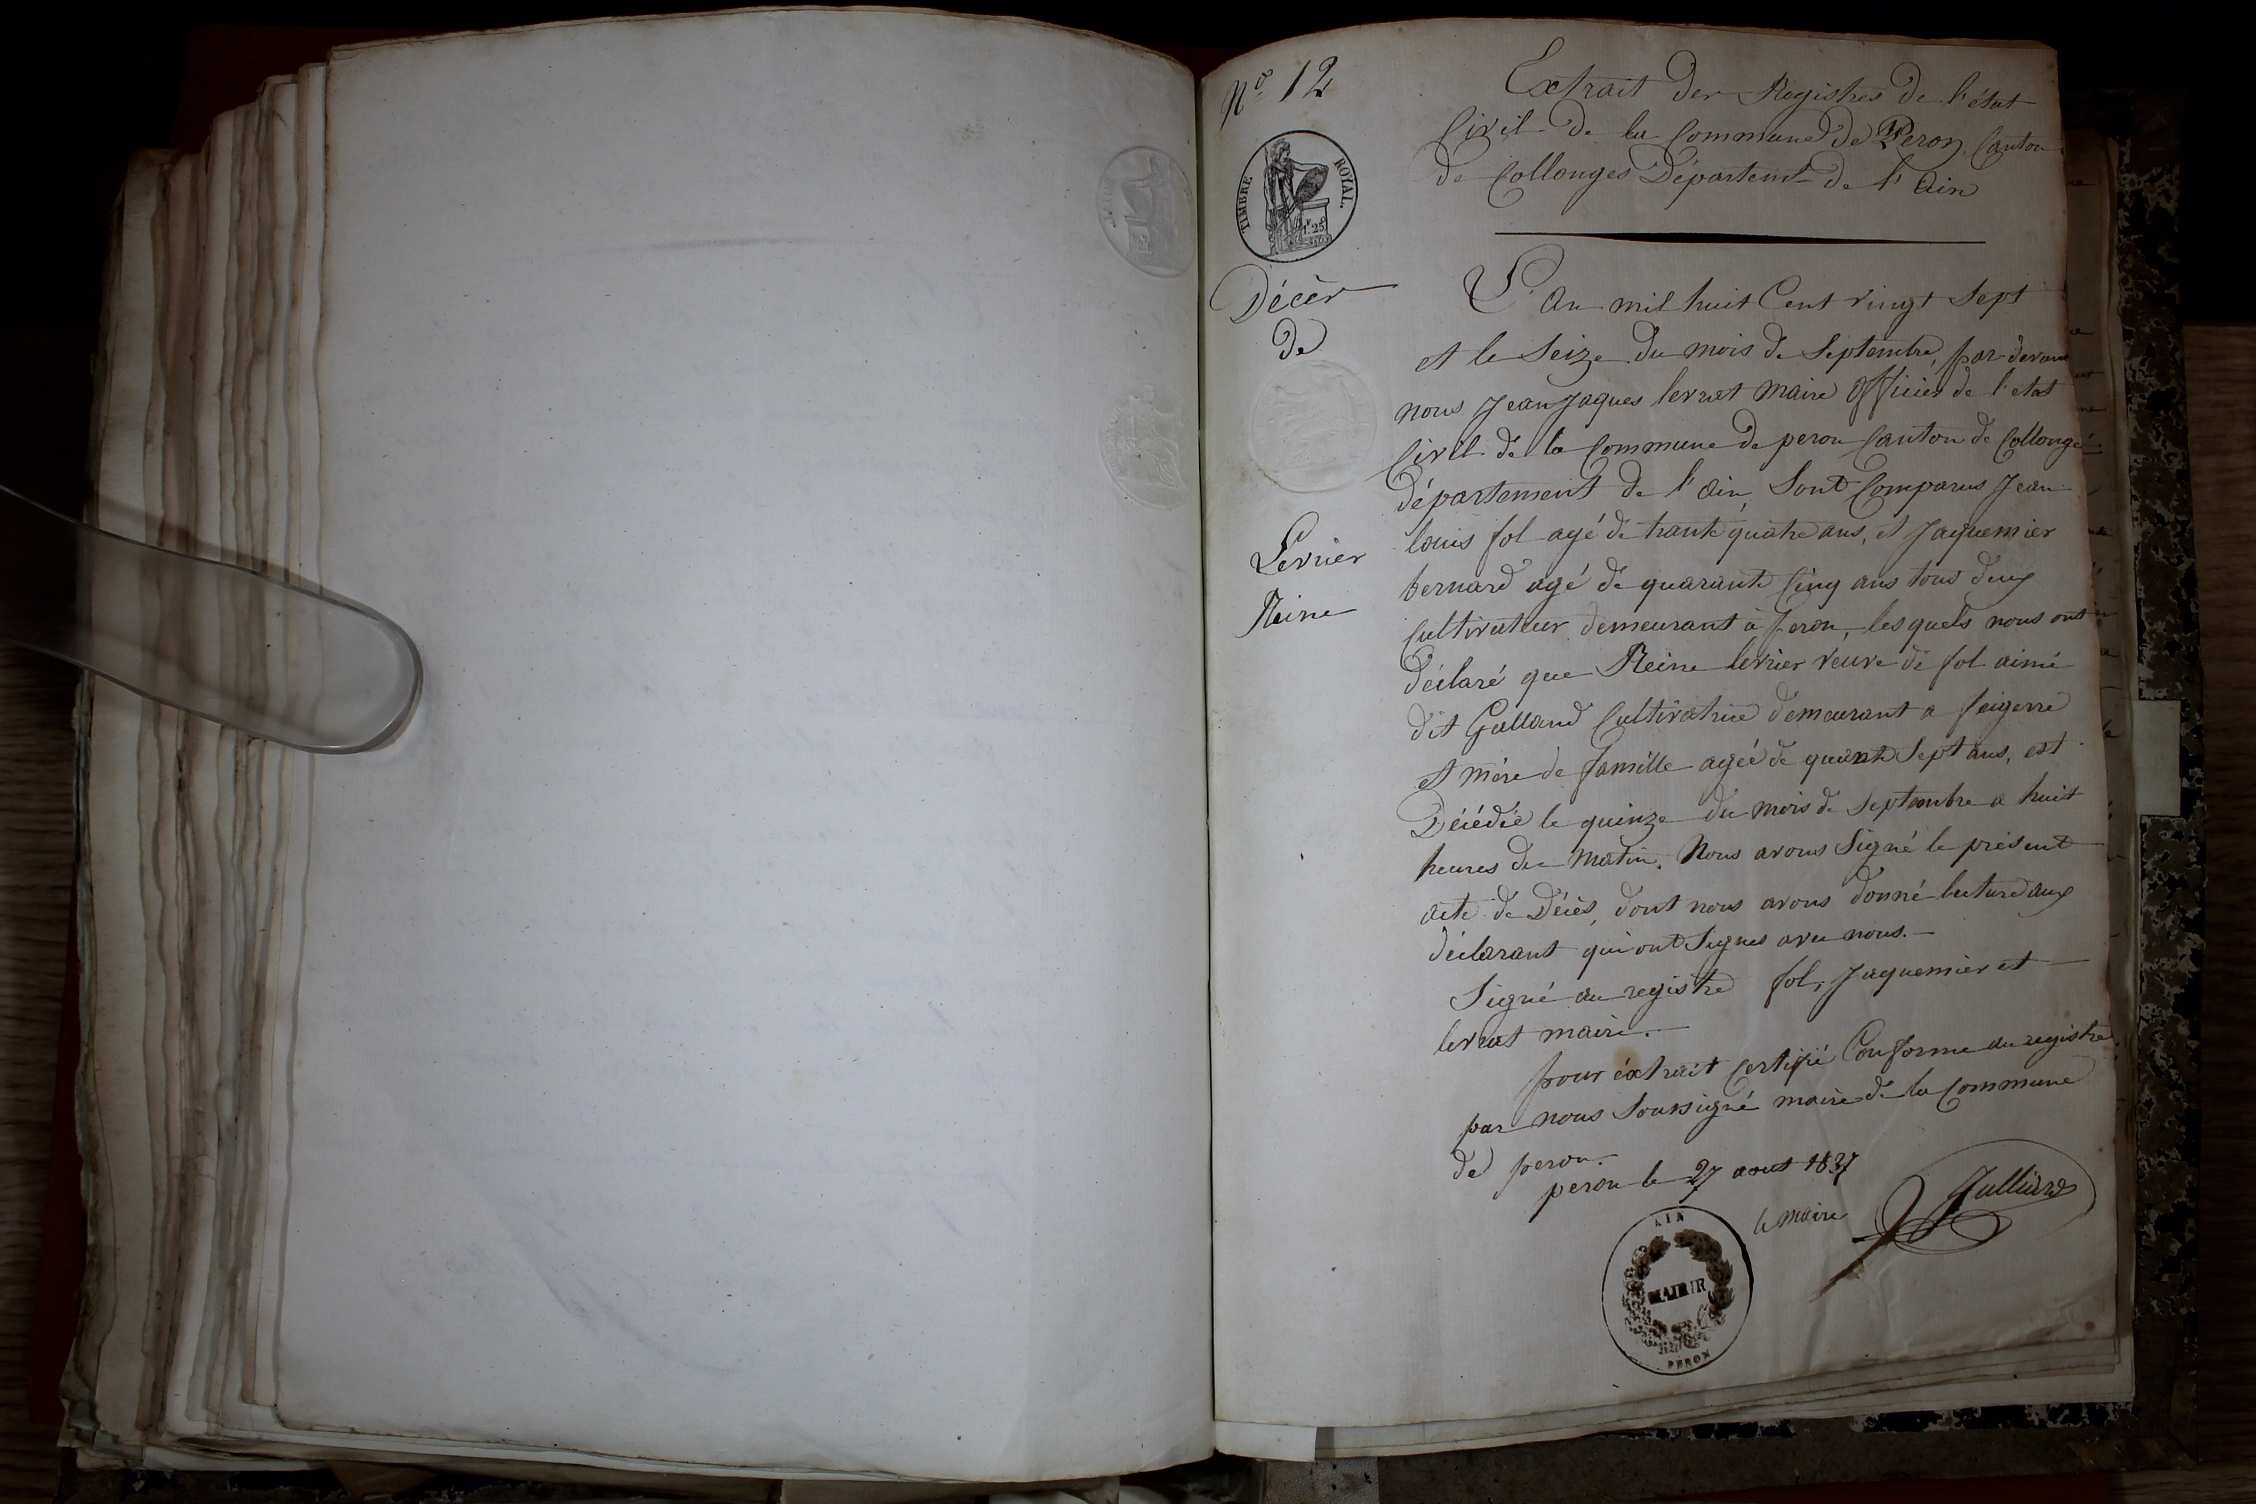 N° 12
Extrait des Registres de l'état
Civil de la Commune de Peron, Canton
de Collonges Département de l'Ain
TIMBRE ROYAL.
1f. 25
Décès
de
Levrier
Reine
L'an mil huit Cent vingt Sept
et le Seize du mois de Septembre, par devant
nous Jean Jaques levrat maire officier de l'etat
Civil de la Commune de peron Canton de Collonge
département de l'ain, Sont Comparus Jean
louis fol agé de trante quatre ans, et Jaquemier
bernard agé de quarante Cinq ans tous deux
Cultivateur demeurant à peron, lesquels nous ont
déclaré que Reine levrier veuve de fol aimé
dit Galland Cultivatrice demeurant a feigerre
et mére de famille agée de quante Sept ans, est
Décédée le quinze du mois de Septembre a huit
heures du matin. Nous avons Signé le présent
acte de Décès, dont nous avons donné lecture aux
déclarant qui ont Signes avec nous.
Signé au registre fol, Jaquemier et
levrat maire.
pour éxtrait Certifié Conforme au registre
par nous Soussigné maire de la Commune
de peron.
peron le 27 aout 1837
le maire
Julliard
AIN
MAIRIE
PERON